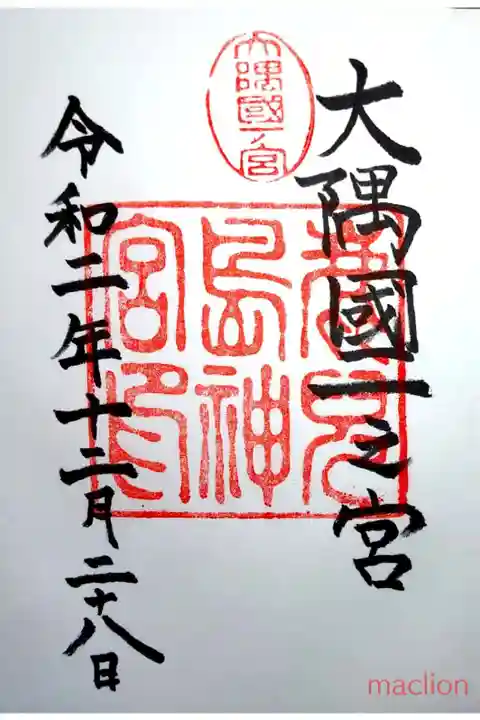 大隅國一之宮
大隅國一ノ宮
鹿兒
島神
宮印
令和二年十二月二十八日
maclion